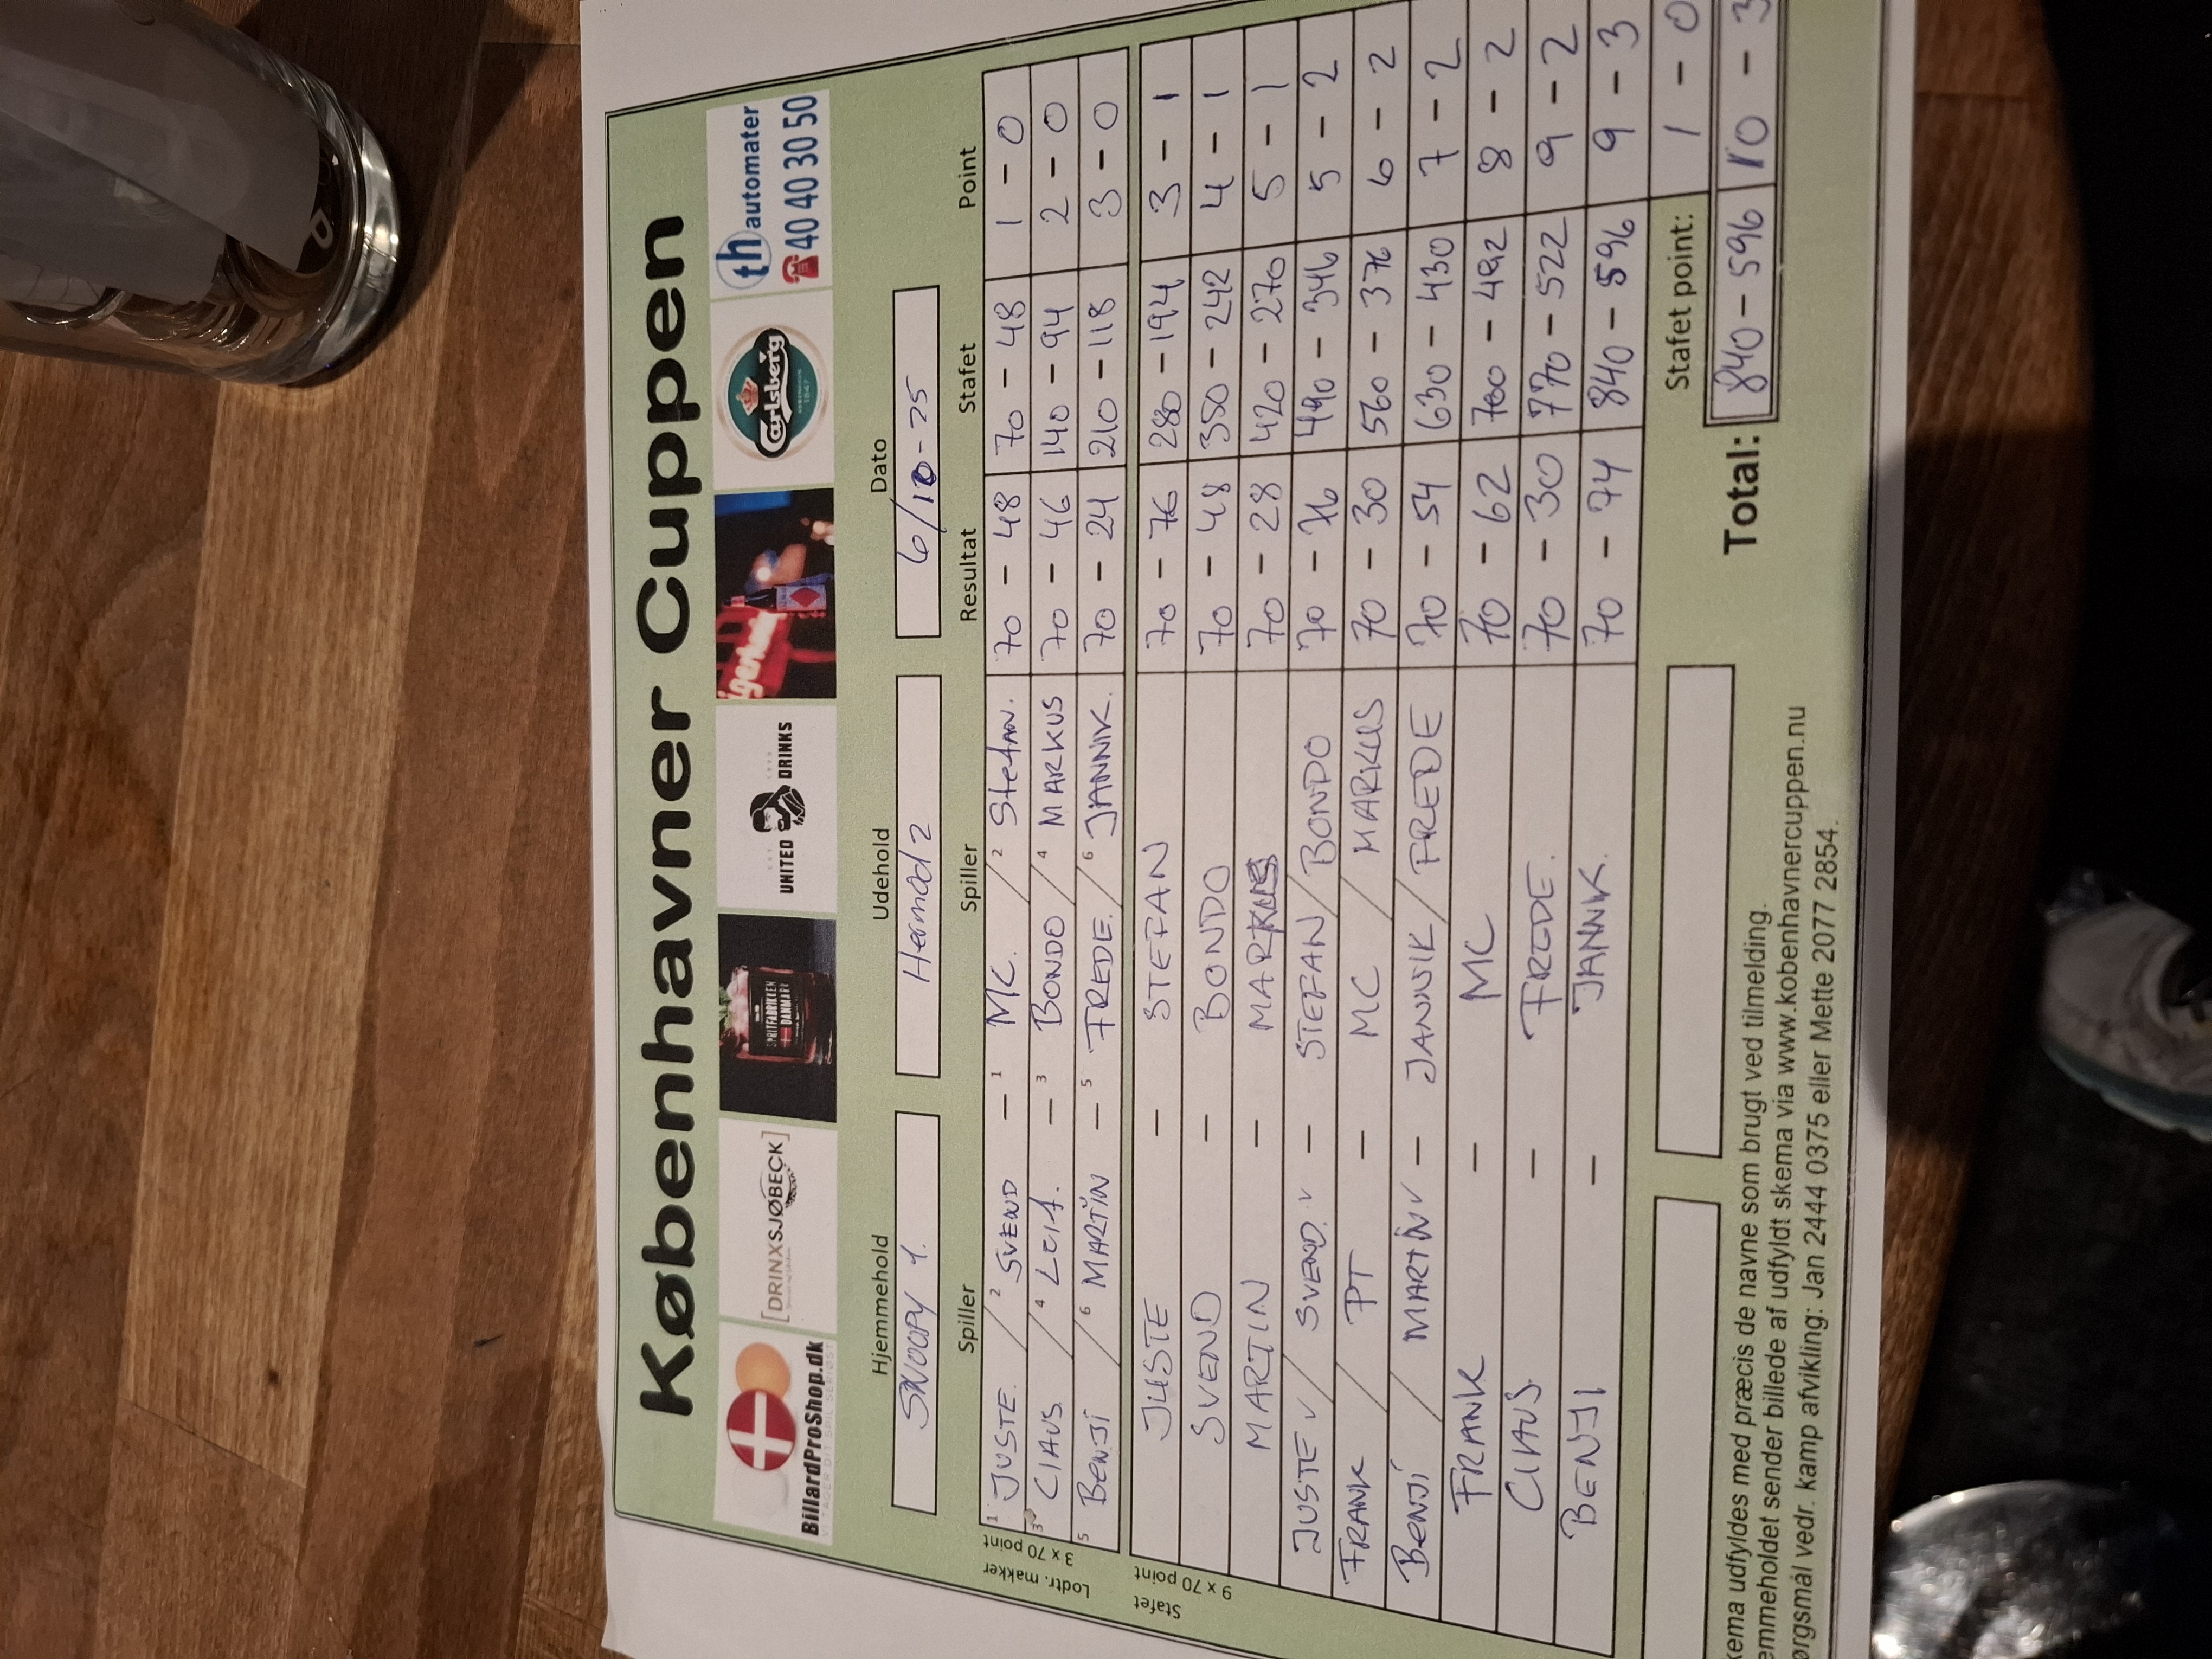 Københavner Cuppen
BillardProShop.dk
[DRINXSJØBECK]
SPRITFABRIKKEN DANMARK
UNITED DRINKS
Carlsberg
th automater
40 40 30 50
Hjemmehold Udehold Dato
SNOOPY 1. Hermod 2 6/10-25
Spiller Spiller Resultat Stafet Point
Lodtr. makker
3 x 70 point
1 JUSTE. / 2 SVEND - 1 MC. / 2 Stefan. 70 - 48 70 - 48 1 - 0
3 ClAUS / 4 Leif. - 3 BONDO / 4 MARKUS 70 - 46 140 - 94 2 - 0
5 Benji / 6 MARTIN - 5 FREDE. / 6 JANNIK. 70 - 24 210 - 118 3 - 0
Stafet
9 x 70 point
JUSTE - STEFAN 70 - 76 280 - 194 3 - 1
SVEND - BONDO 70 - 48 350 - 242 4 - 1
MARTIN - MARKUS 70 - 28 420 - 270 5 - 1
JUSTE v / SVEND. v - STEFAN / BONDO 70 - 76 490 - 346 5 - 2
FRANK / PT - MC / MARKUS 70 - 30 560 - 376 6 - 2
BENJI / MARTIN v - JANNIK / FREDE 70 - 54 630 - 430 7 - 2
FRANK - MC 70 - 62 700 - 492 8 - 2
ClAUS. - FREDE. 70 - 30 770 - 522 9 - 2
BENJI - JANNK. 70 - 74 840 - 596 9 - 3
Stafet point: 1 - 0
Total: 840 - 596 10 - 3
kema udfyldes med præcis de navne som brugt ved tilmelding.
emmeholdet sender billede af udfyldt skema via www.kobenhavnercuppen.nu
ørgsmål vedr. kamp afvikling: Jan 2444 0375 eller Mette 2077 2854.